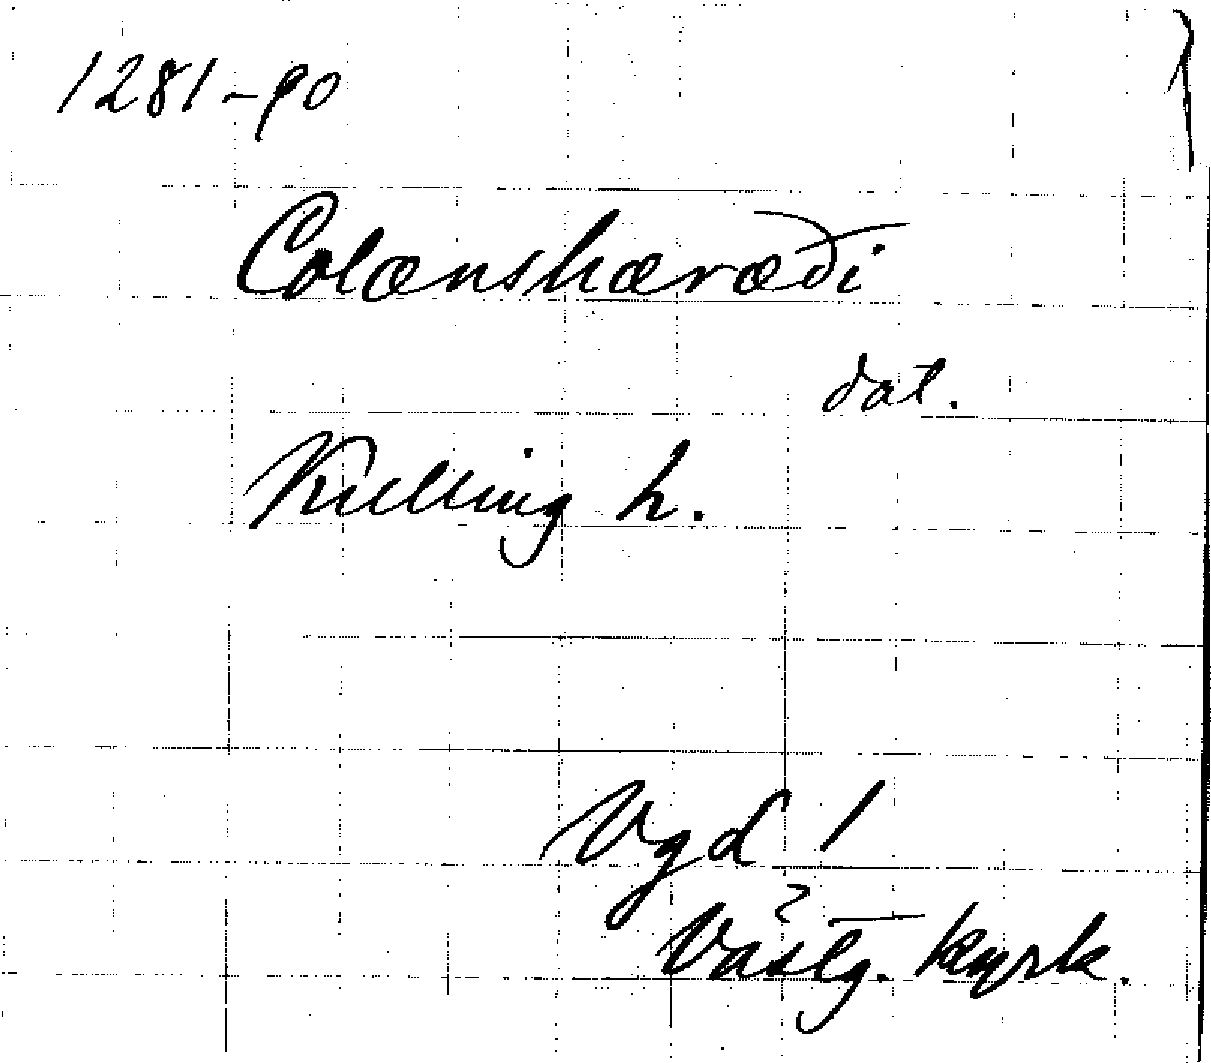 1281-90
Colænshæræði
dat.
Kulling h.
Vgd 1
Västg. kyrk.